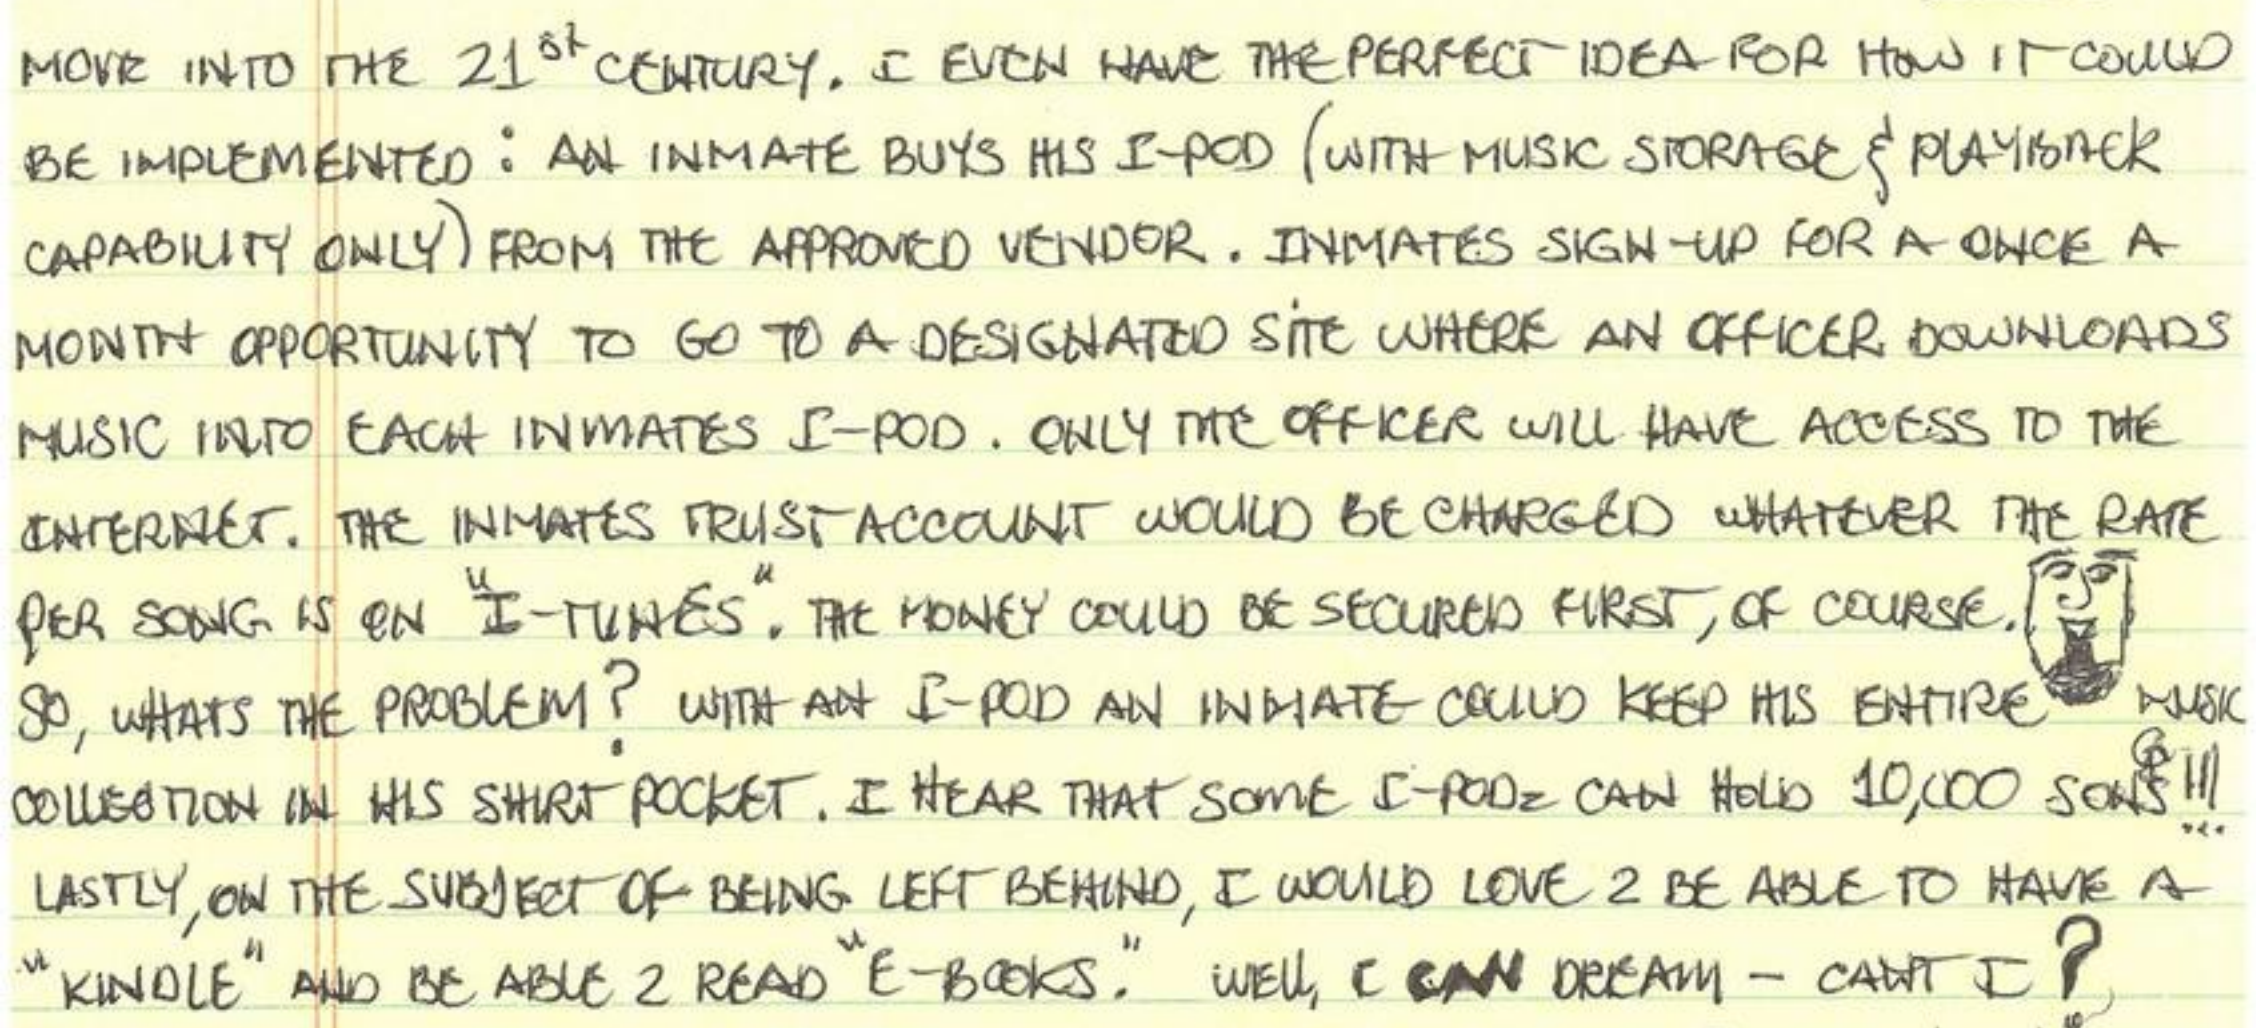 MOVE INTO THE 21st CENTURY. I EVEN HAVE THE PERFECT IDEA FOR HOW IT COULD
BE IMPLEMENTED: AN INMATE BUYS HIS I-POD (WITH MUSIC STORAGE & PLAYBACK
CAPABILITY ONLY) FROM THE APPROVED VENDOR. INMATES SIGN-UP FOR A ONCE A
MONTH OPPORTUNITY TO GO TO A DESIGNATED SITE WHERE AN OFFICER DOWNLOADS
MUSIC INTO EACH INMATES I-POD. ONLY THE OFFICER WILL HAVE ACCESS TO THE
INTERNET. THE INMATES TRUST ACCOUNT WOULD BE CHARGED WHATEVER THE RATE
PER SONG IS ON "I-TUNES". THE MONEY COULD BE SECURED FIRST, OF COURSE.
SO, WHATS THE PROBLEM? WITH AN I-POD AN INMATE COULD KEEP HIS ENTIRE MUSIC
COLLECTION IN HIS SHIRT POCKET. I HEAR THAT SOME I-PODz CAN HOLD 10,000 SONGS!!!
LASTLY, ON THE SUBJECT OF BEING LEFT BEHIND, I WOULD LOVE 2 BE ABLE TO HAVE A
"KINDLE" AND BE ABLE 2 READ "E-BOOKS." WELL, I CAN DREAM - CANT I?